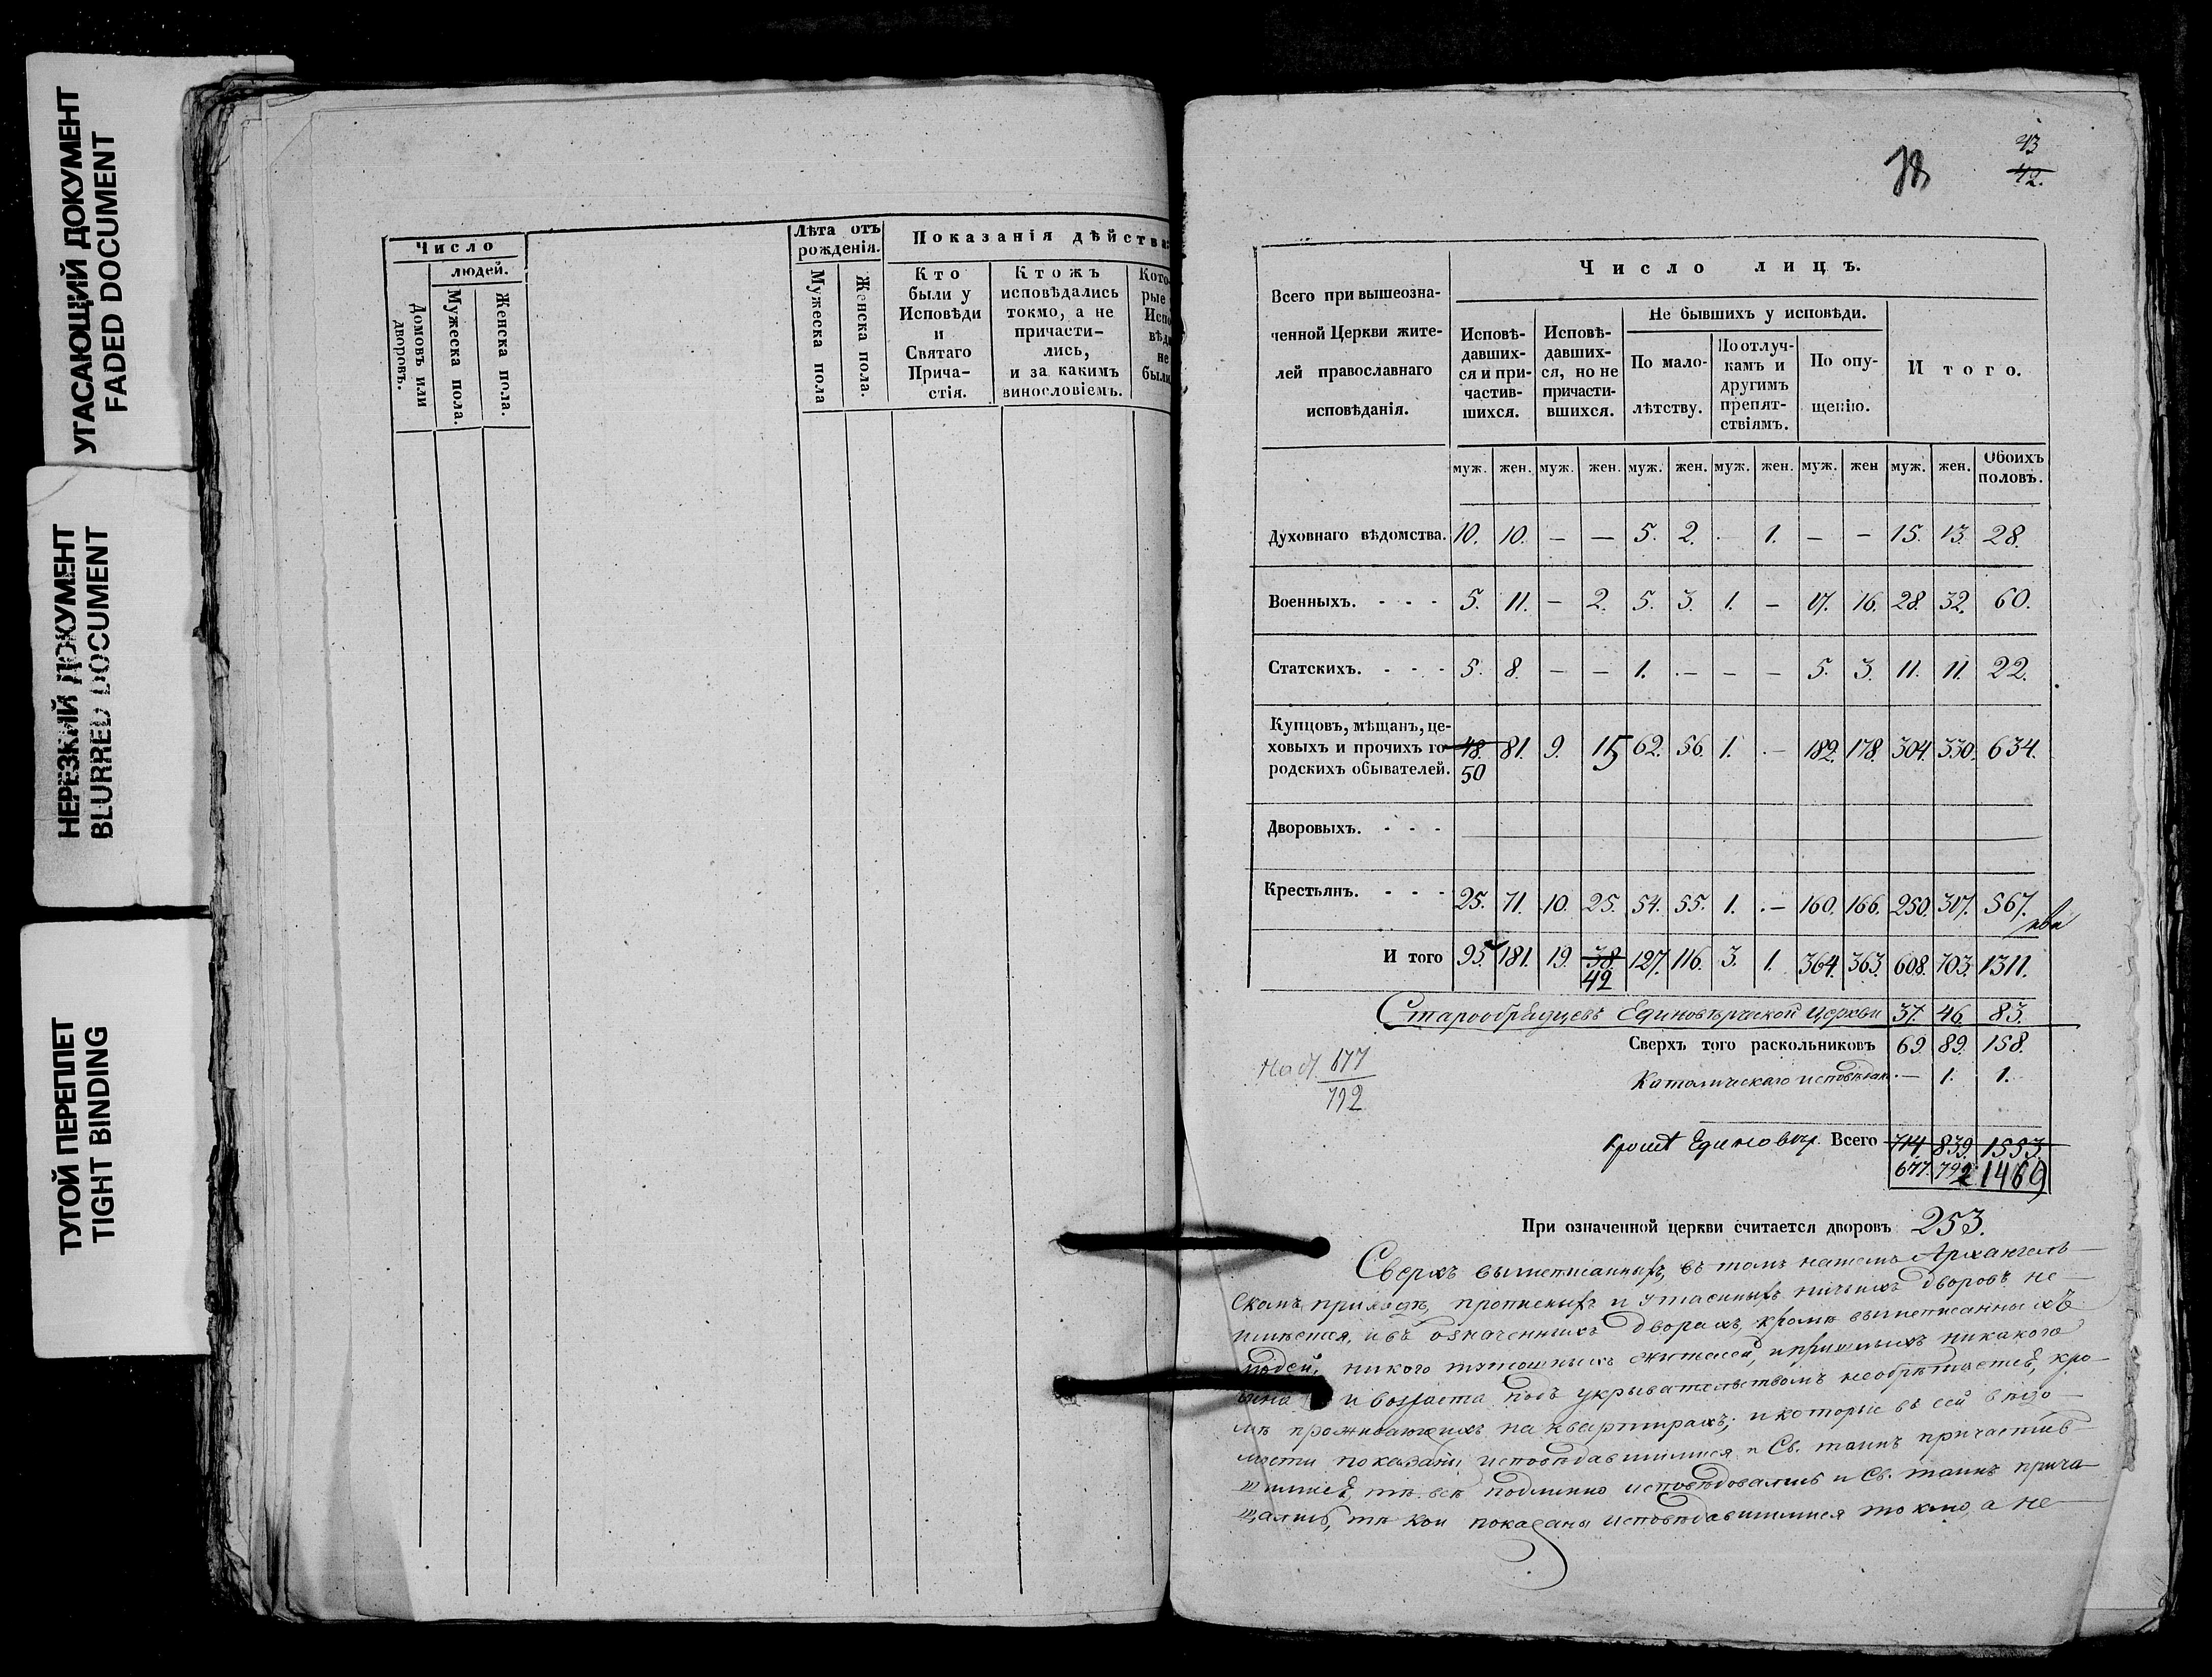 УГАСАЮЩИЙ ДОКУМЕНТ
FADED DOCUMENT
НЕРЕЗКИЙ ДОКУМЕНТ
BLURRED DOCUMENT
ТУГОЙ ПЕРЕПЛЕТ
TIGHT BINDING
Число
людей.
Домовъ или дворовъ.
Мужеска пола.
Женска пола.
Лѣта отъ рожденія.
Мужеска пола
Женска пола.
Показанія дѣйства
Кто были у Исповѣди и Святаго Прича-стія.
Ктожъ исповѣдались токмо, а не причасти-лись, и за какимъ винословіемъ.
Кото-рые Испо вѣд не были
43
42.
Всего при вышеозна-
ченной Церкви жите-
лей православнаго
исповѣданія.
Число лицъ.
Исповѣ-давших-ся и при-частив-шихся.
Исповѣ-давших-ся, но не причасти-вшихся.
Не бывшихъ у исповѣди.
По мало-лѣтству.
По отлуч-камъ и другимъ препят-ствіямъ.
По опу-щенію.
Итого.
муж. жен. муж. жен. муж. жен. муж. жен. муж. жен муж. жен. Обоихъ половъ.
Духовнаго вѣдомства. 10. 10. — — 5. 2. - 1. — — 15. 13. 28.
Военныхъ. - - - 5. 11. — 2. 5. 3. 1. — 17. 16. 28. 32. 60.
Статскихъ. - - - 5. 8. — — 1. — — — 5. 3. 11. 11. 22.
Купцовъ, мѣщанъ, це-
ховыхъ и прочихъ го- 48. 81. 9. 15 62. 56. 1. — 182. 178. 304. 330. 634.
родскихъ обывателей. 50
Дворовыхъ. - - -
Крестьянъ. - - - 25. 71. 10. 25. 54. 55. 1. — 160. 166. 250. 317. 567.
И того 95. 181. 19. 38. 127. 116. 3. 1. 364. 363. 608. 703. 1311.
42
Старообрядцевъ Единовѣрческой Церкви 37. 46. 83.
Сверхъ того раскольниковъ 69. 89. 158.
677
792
Католическаго исповѣдан. — 1. 1.
Кромѣ Единовѣр. Всего 714. 839. 1553.
677. 792 1469
При означенной церкви считается дворовъ 253.
Сверхъ вышеписанныхъ, въ томъ нашемъ Архангель-
скомъ приходѣ, прописныхъ и утаенныхъ ничьихъ дворовъ не
имѣется, и въ означенныхъ дворахъ, кромѣ вышеписанныхъ
людей, никого тутошныхъ жителей, и пришлыхъ никакого
чина и возраста подъ укрывательствомъ необрѣтается, кро-
мѣ проживающихъ на квартирахъ; и которые въ сей вѣдо-
мости показаны исповѣдавшимися и Св. таинъ причастив-
шимися, тѣ всѣ подлинно исповѣдовались и Св. таинъ прича-
щались, тѣ кои показаны исповѣдавшимися токмо, а не